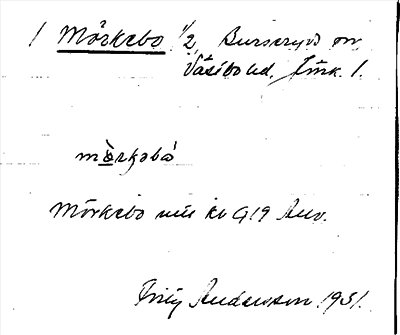 / Mörkebo 1/2, Burseryds sn,
Västbo hd, Jönk. l.
mörkəbo
Mörkebo
Fritz Andersson 1931.